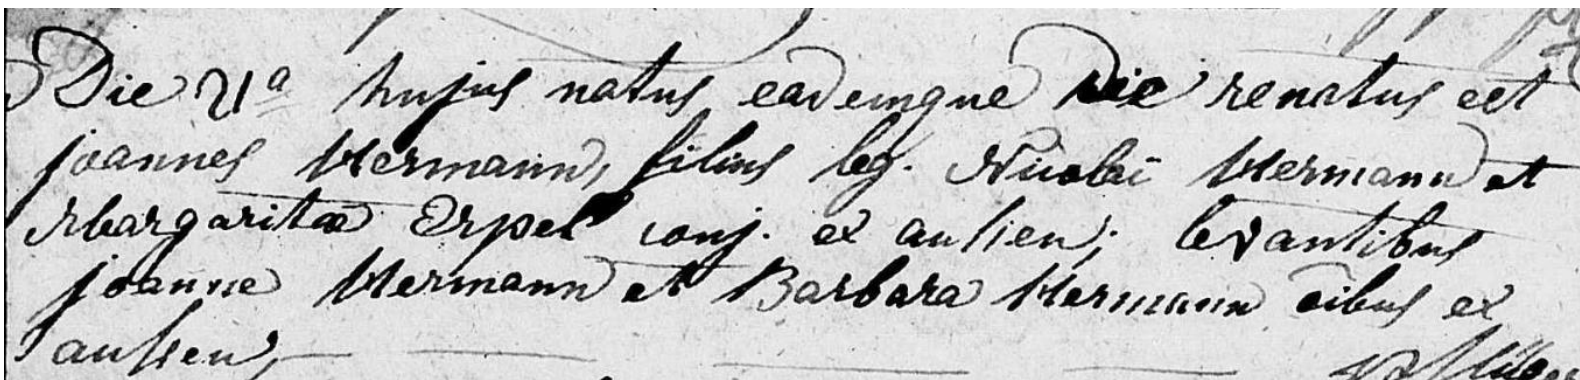 Die 21ᵃ hujus natus, eademque die renatus est
joannes Hermann, filius leg. Nicolai Hermann et
Margaritæ Erpel conj. ex aussen; levantibus
joanne Hermann et Barbara Hermann oibus ex
aussen,